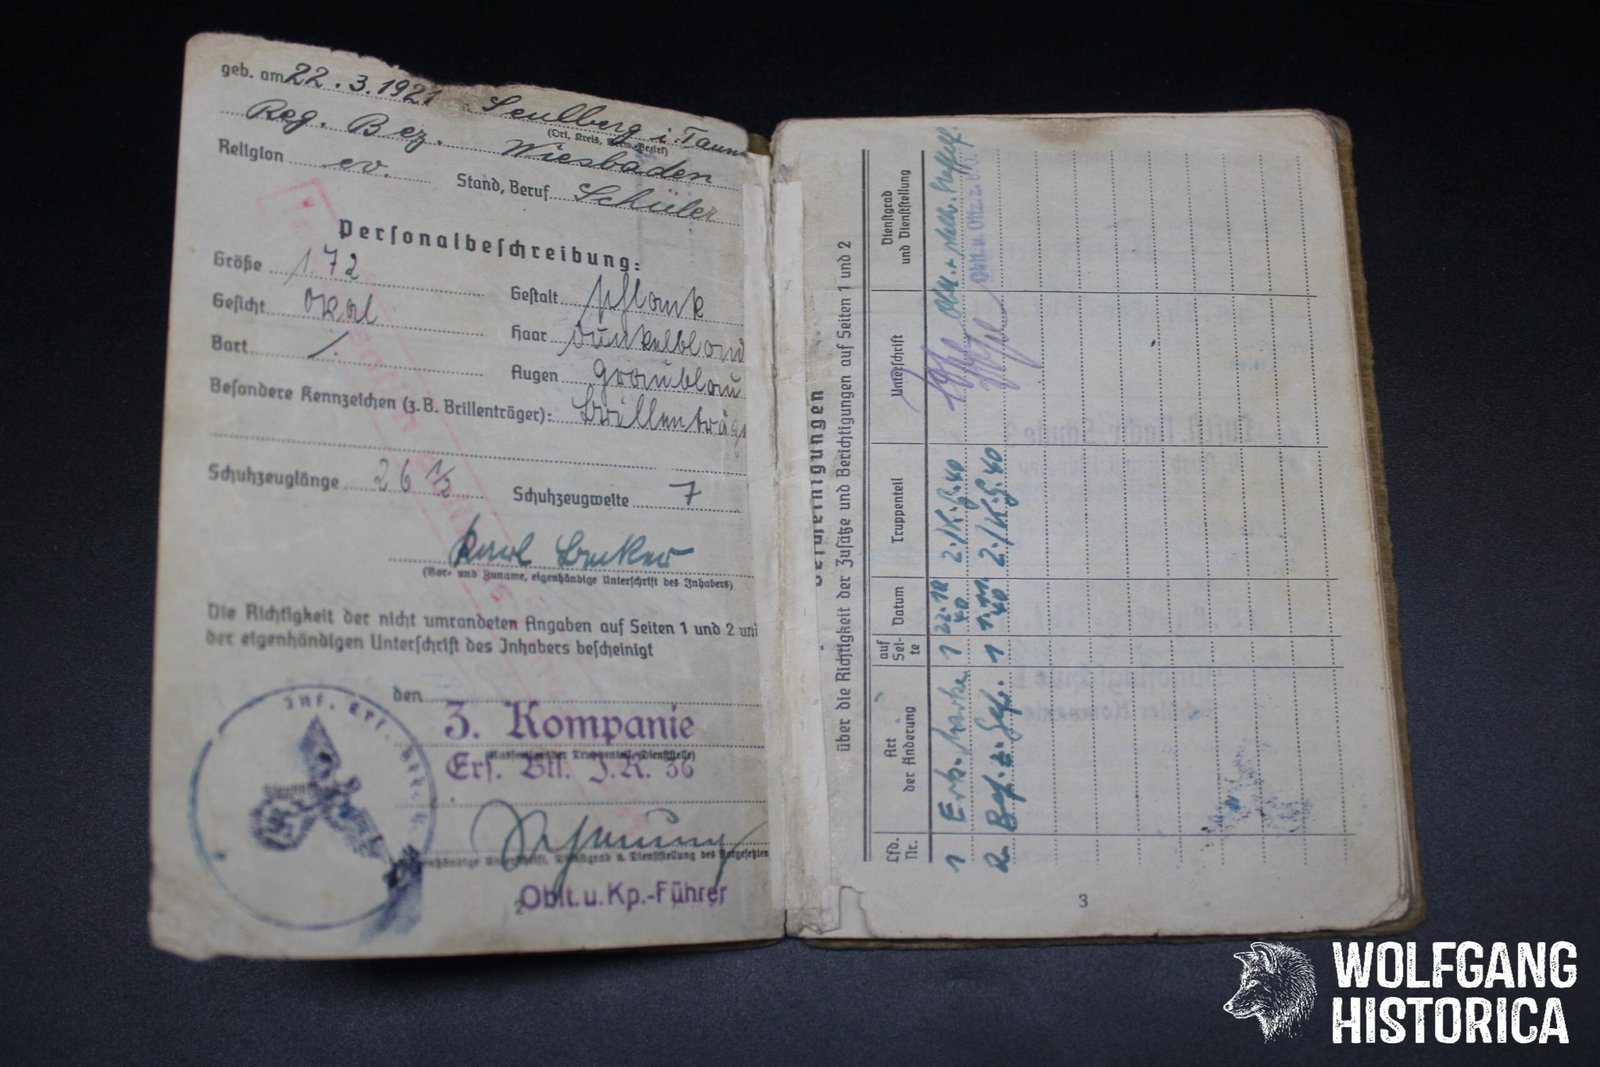 geb. am 22.3.1921 Seulberg i. Taun
(Ort, Kreis, Verw.-Bezirk)
Reg. Bez. Wiesbaden
Religion ev. Stand, Beruf Schüler
Personalbeschreibung:
Größe 172 Gestalt schlank
Gesicht oval Haar dunkelblond
Bart /. Augen graublau
Besondere Kennzeichen (z.B. Brillenträger): Brillenträg
Schuhzeuglänge 26 1/2 Schuhzeugweite 7
Karl Becker
(Vor- und Zuname, eigenhändige Unterschrift des Inhabers)
Die Richtigkeit der nicht umrandeten Angaben auf Seiten 1 und 2 und
der eigenhändigen Unterschrift des Inhabers bescheinigt
den
3. Kompanie
Ers. Btl. I.R. 36
Inf. Ers. Btl.
Dienstgrad u. Dienststellung des Vorgesetzten
Oblt. u. Kp.-Führer
2
Bescheinigungen
über die Richtigkeit der Zusätze und Berichtigungen auf Seiten 1 und 2
Lfd. Nr. Art der Änderung auf Seite Datum Truppenteil Unterschrift Dienstgrad und Dienststellung
1 Erk. Marke 1 40
2. Bef. z. Gefr. 1 40
Oblt. u. Offz. z. b.
3
WOLFGANG
HISTORICA